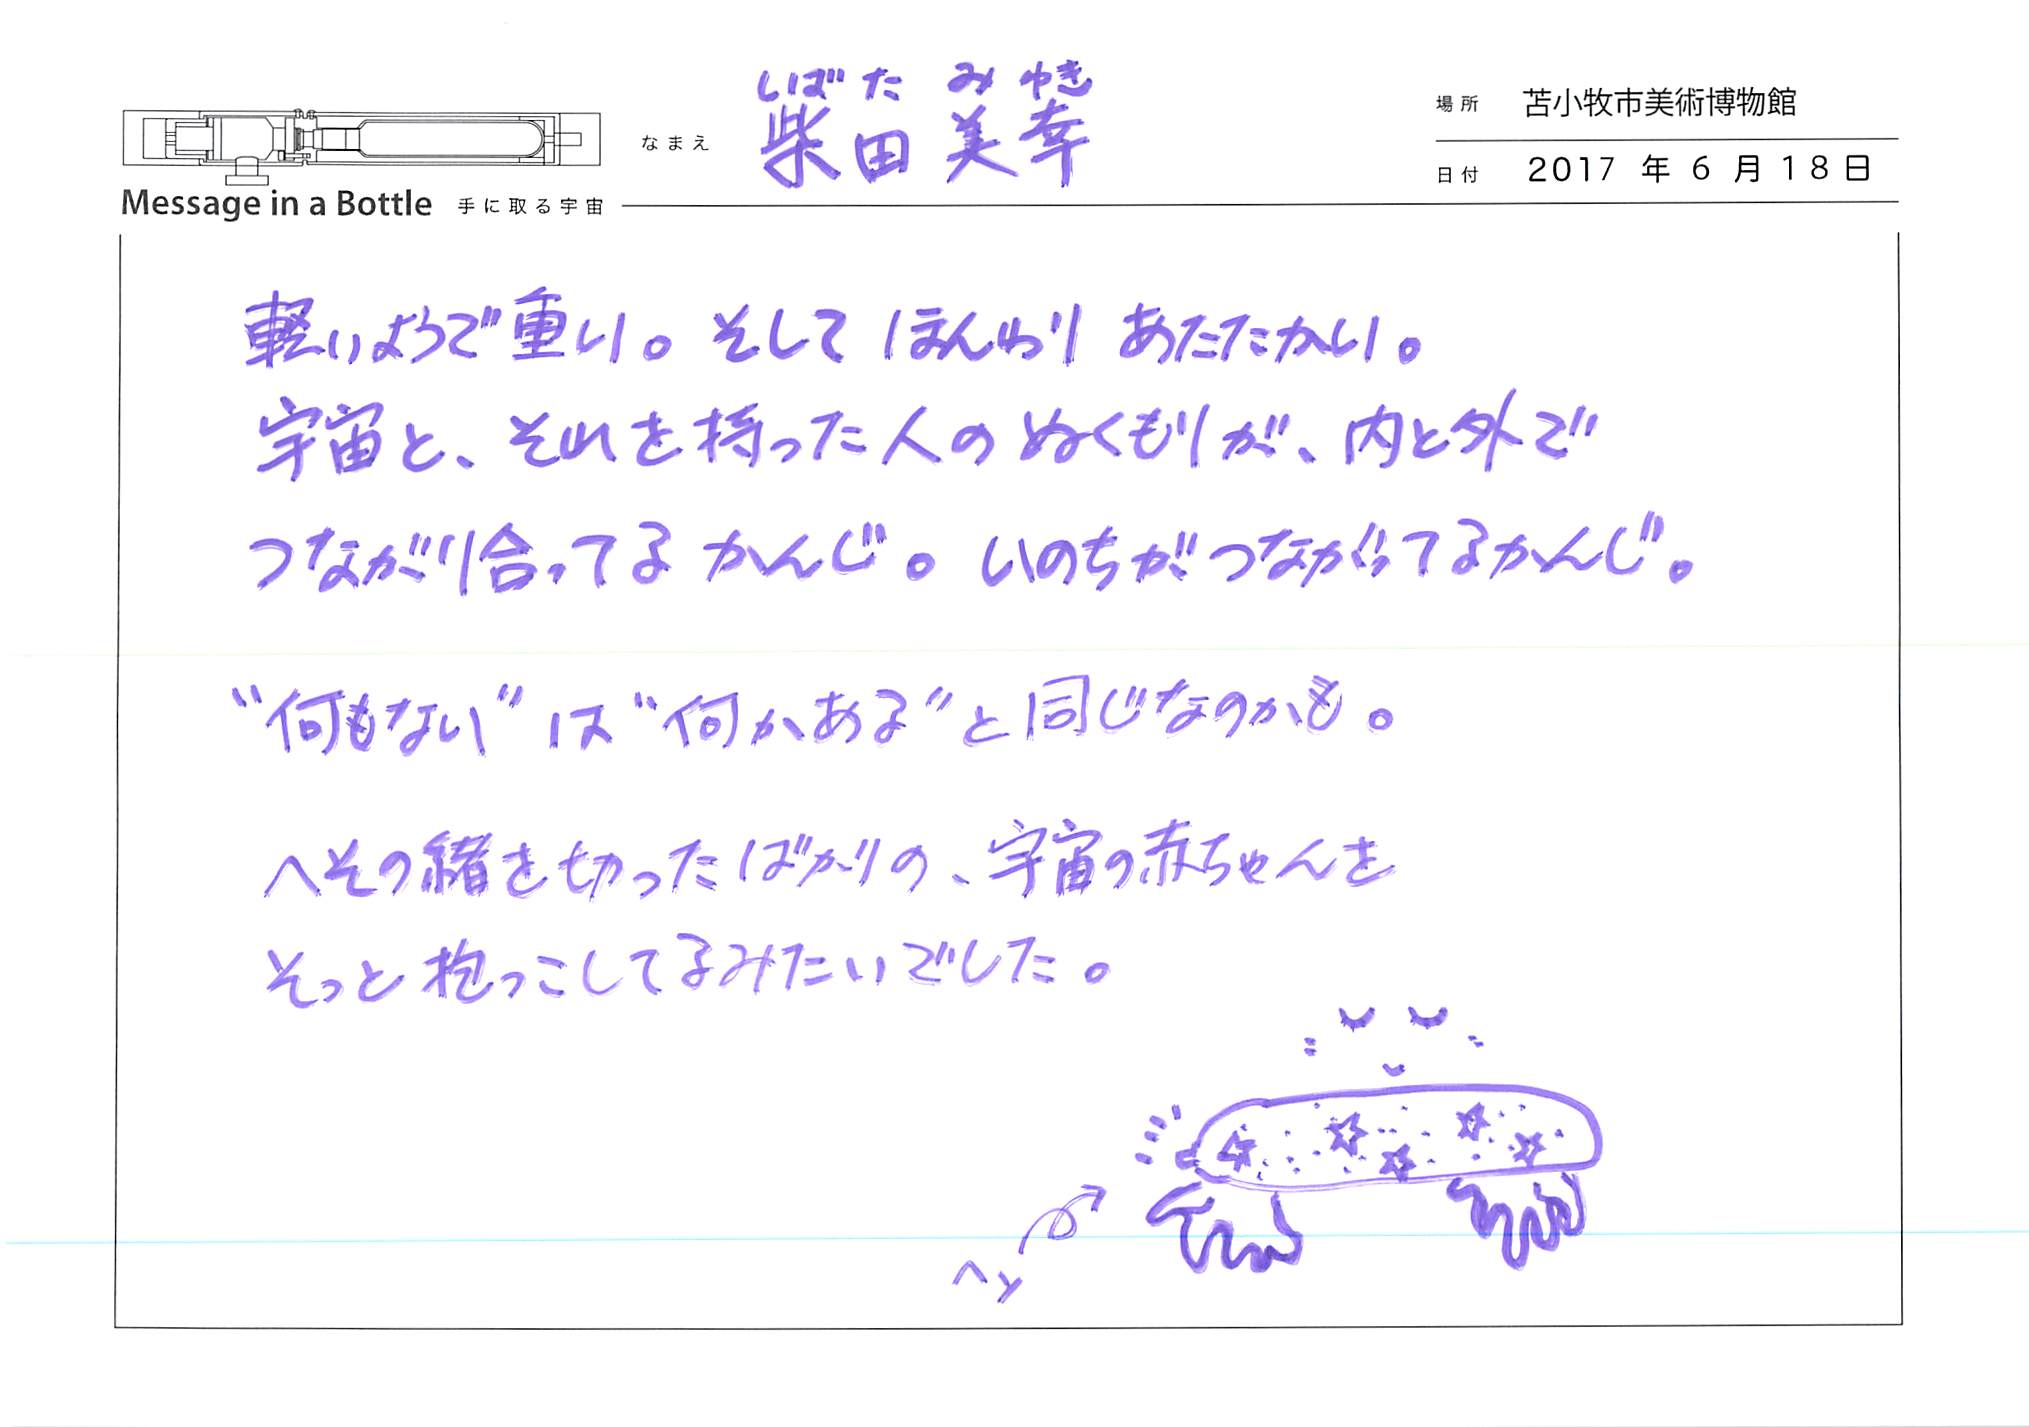 しばた みゆき
なまえ 柴田美幸
場所 苫小牧市美術博物館
日付 2017 年 6 月 18 日
Message in a Bottle 手に取る宇宙
軽いようで重い。そして ほんわり あたたかい。
宇宙と、それを持った人の ぬくもりが、内と外で
つながり合ってる かんじ。いのちが つながってるかんじ。
“何もない” は “何かある” と同じなのかも。
へその緒を切ったばかりの、宇宙の赤ちゃんを
そっと 抱っこしてるみたいでした。
へソ